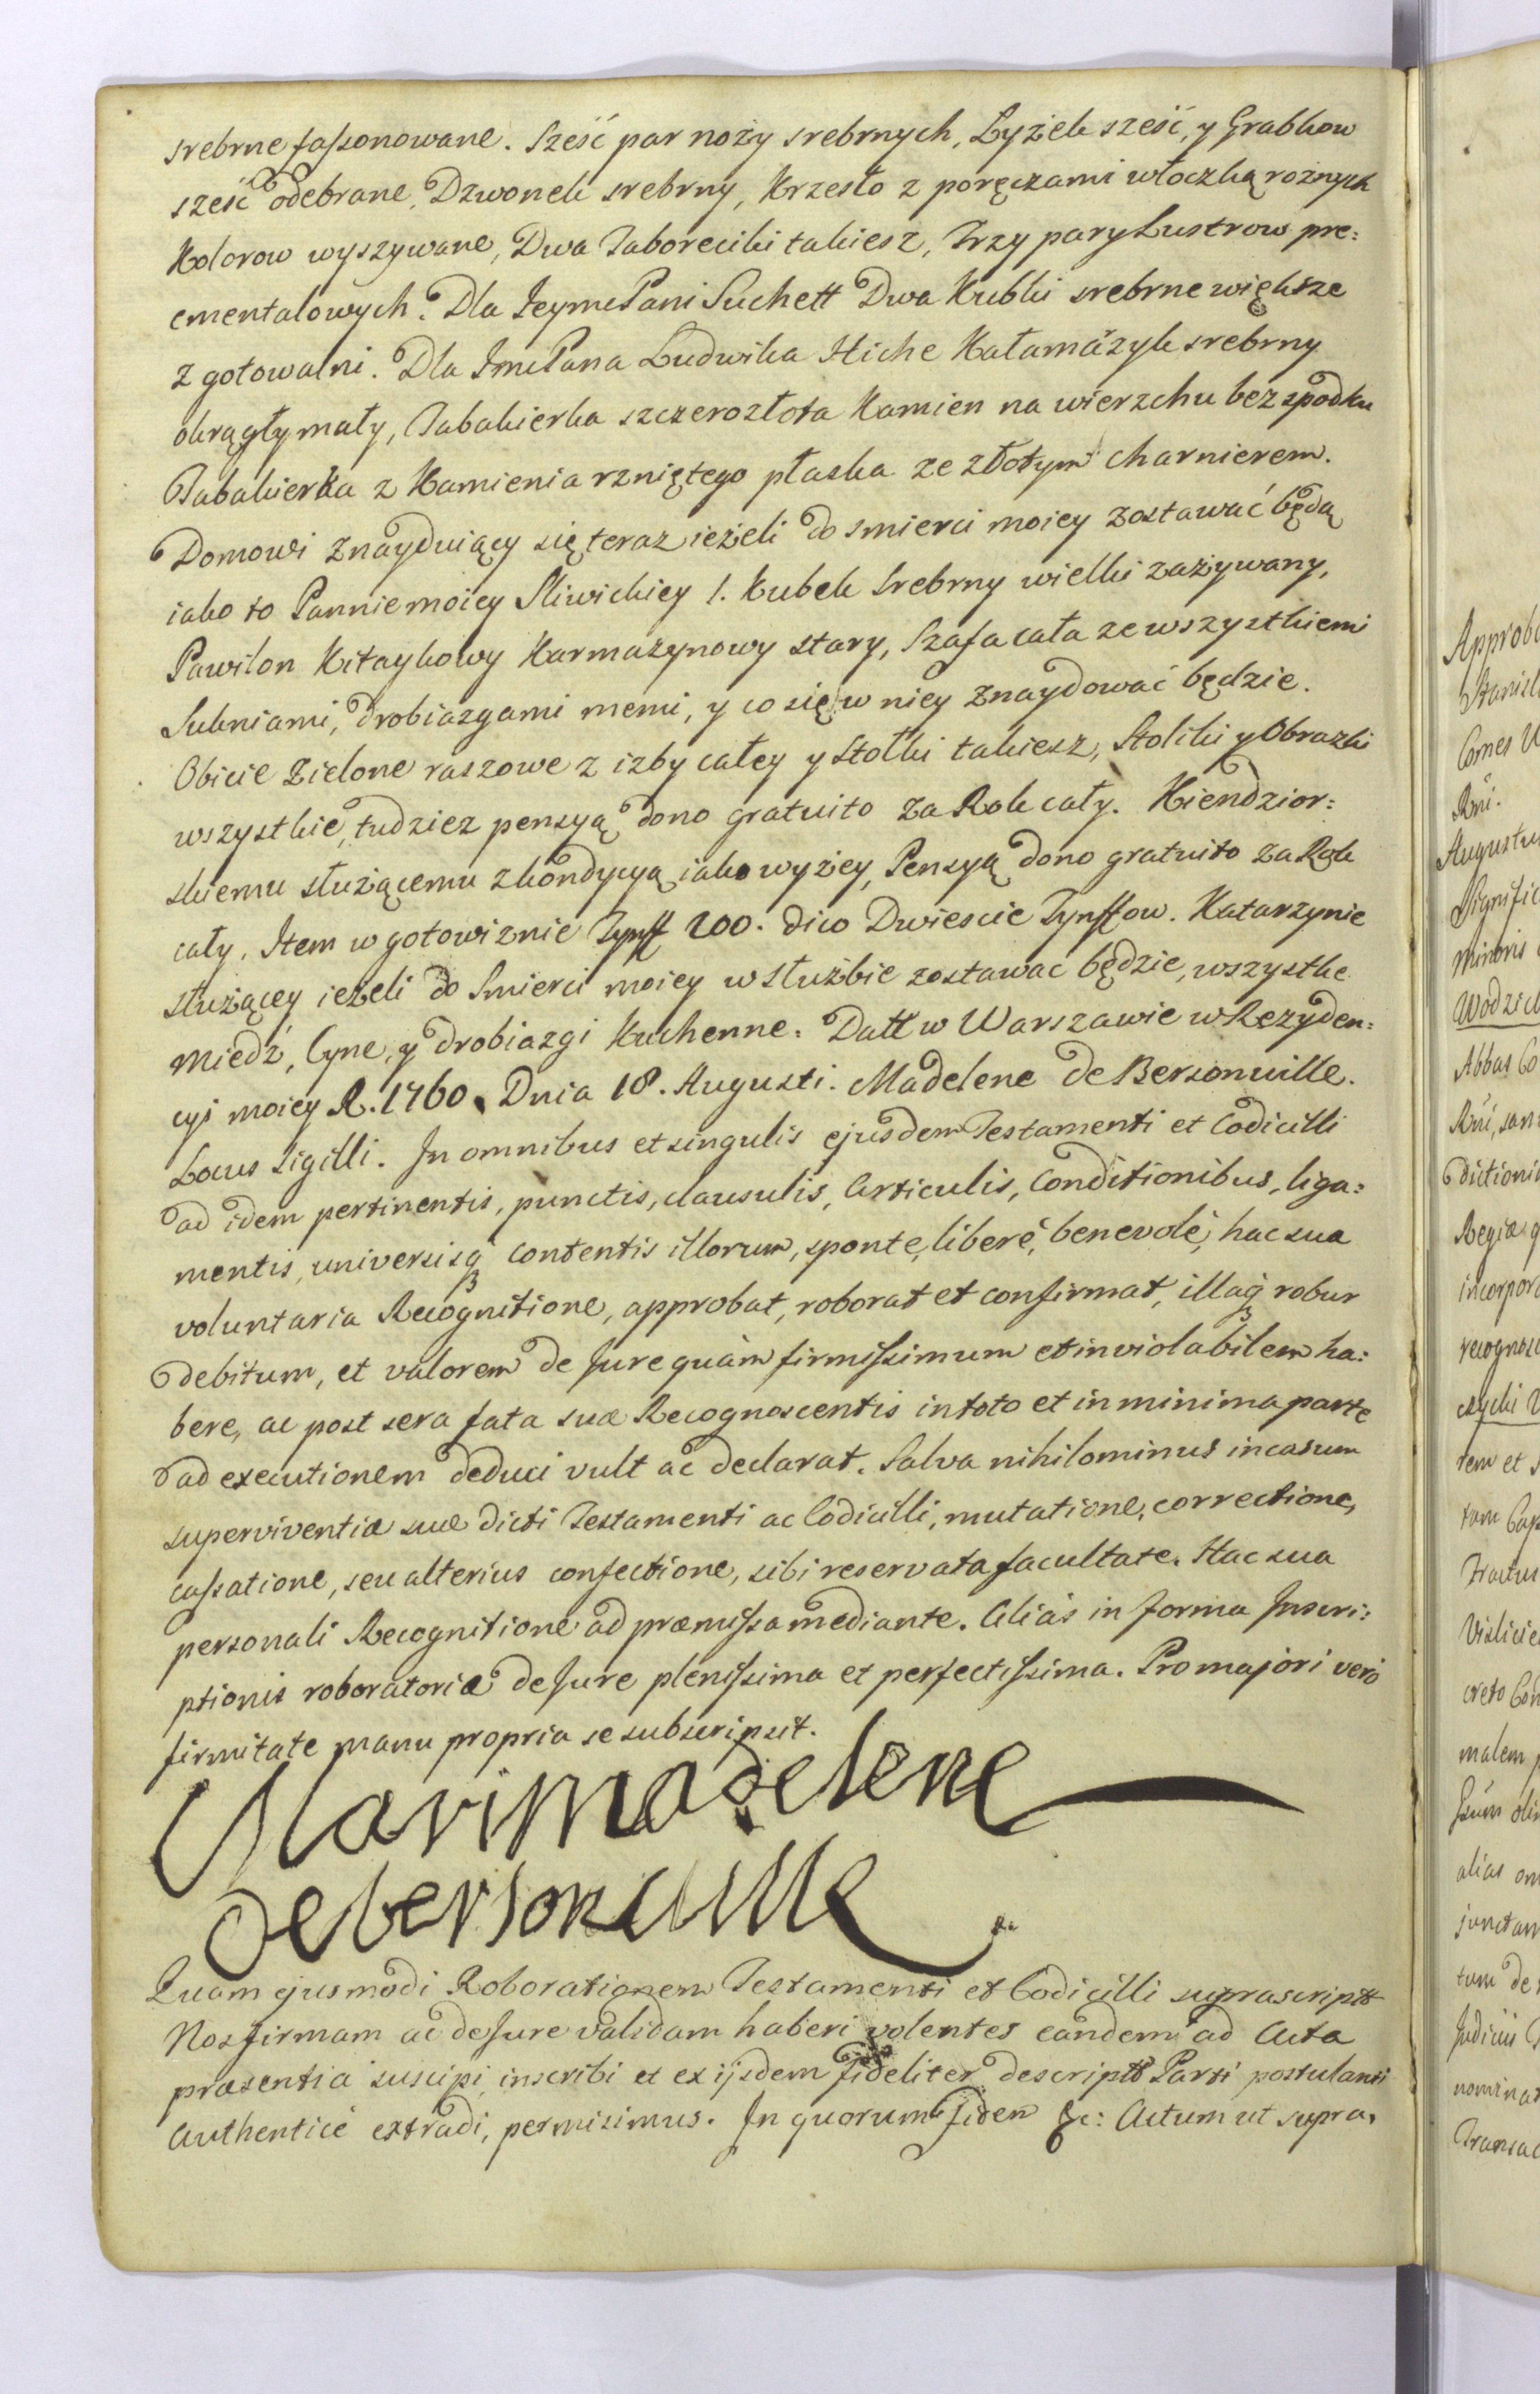 srebrne faſsonowane. Sześć par noży srebrnych, Łyżek sześć, y Grabkow
sześć odebrane, Dzwonek srebrny, Krzesło z poręczami włoczką rożnych
Kolorow wyszywane, Dwa Taboreciki takiesz, Trzy pary Lustrow pre:
ementalowych. Dla JeymcPani Suchett Dwa Kubki srebrne większe
z gotowalni. Dla JmcPana Ludwika Hiche Kałamarzyk srebrny
okrągły mały, Tabakierka szczerozłota Kamien na wierzchu bez spodku
Tabakierka z Kamienia rzniętego płaska ze złotym charnierem.
Domowi znayduiący się teraz ieżeli do smierci moiey zostawać będą
iako to Pannie moiey Sliwickiey 1. Kubek Srebrny wielki zażywany,
Pawilon Kitaykowy Karmazynowy stary, Szafa cała ze wszystkiemi
Sukniami, drobiazgami memi, y co się w niey znaydować będzie.
Obicie zielone raszowe z izby całey y Stołki takiesz, Stoliki y Obrazki
wszystkie, tudziez pensyą dono gratuito za Rok cały. Kiendzior:
skiemu służącemu z kondycyą iako wyżey, Pensyą dono gratuito za Rok
cały. Item w gotowiznie Tynff 200. dico Dwiescie Tynffow. Katarzynie
służącey ieżeli do Smierci moiey w Służbie zostawac będzie, wszystke
Miedź, Cyne, y drobiazgi Kuchenne. Datt w Warszawie w Rezyden:
cyi moiey R. 1760. Dnia 18. Augusti. Madelene de Bersonuille.
Locus Sigilli. In omnibus et singulis ejusdem Testamenti et Codicilli
ad idem pertinentis, punctis, clausulis, Articulis, Conditionibus, liga:
mentis, universisq3 contentis illorum, sponte, liberè, benevolè, hac sua
voluntaria Recognitione, approbat, roborat et confirmat, illaq3 robur
debitum, et valorem de Jure quàm firmiſsimum et inviolabilem ha:
bere, ac post sera fata suæ Recognoscentis in toto et in minima parte
ad executionem deduci vult ac declarat. Salva nihilominus in casum
superviventiæ suæ dicti Testamenti ac Codicilli, mutatione, correctione,
caſsatione, seu alterius confectione, sibi reservata facultate. Hac sua
personali Recognitione ad præmiſsa mediante. Aliàs in forma Inscri:
ptionis roboratoriæ de Jure pleniſsima et perfectiſsima. Pro majori verò
firmitate manu propria se subscripsit.
Marimadelene
debersonuille
Quam ejusmodi Roborationem Testamenti et Codicilli suprascriptt
Nos firmam ac de Jure validam haberi volentes eandem ad Acta
præsentia suscipi, inscribi et ex ijsdem fideliter descriptt Parti postulanti
Authenticè extradi, permisimus. In quorum fidem &c: Actum ut supra.